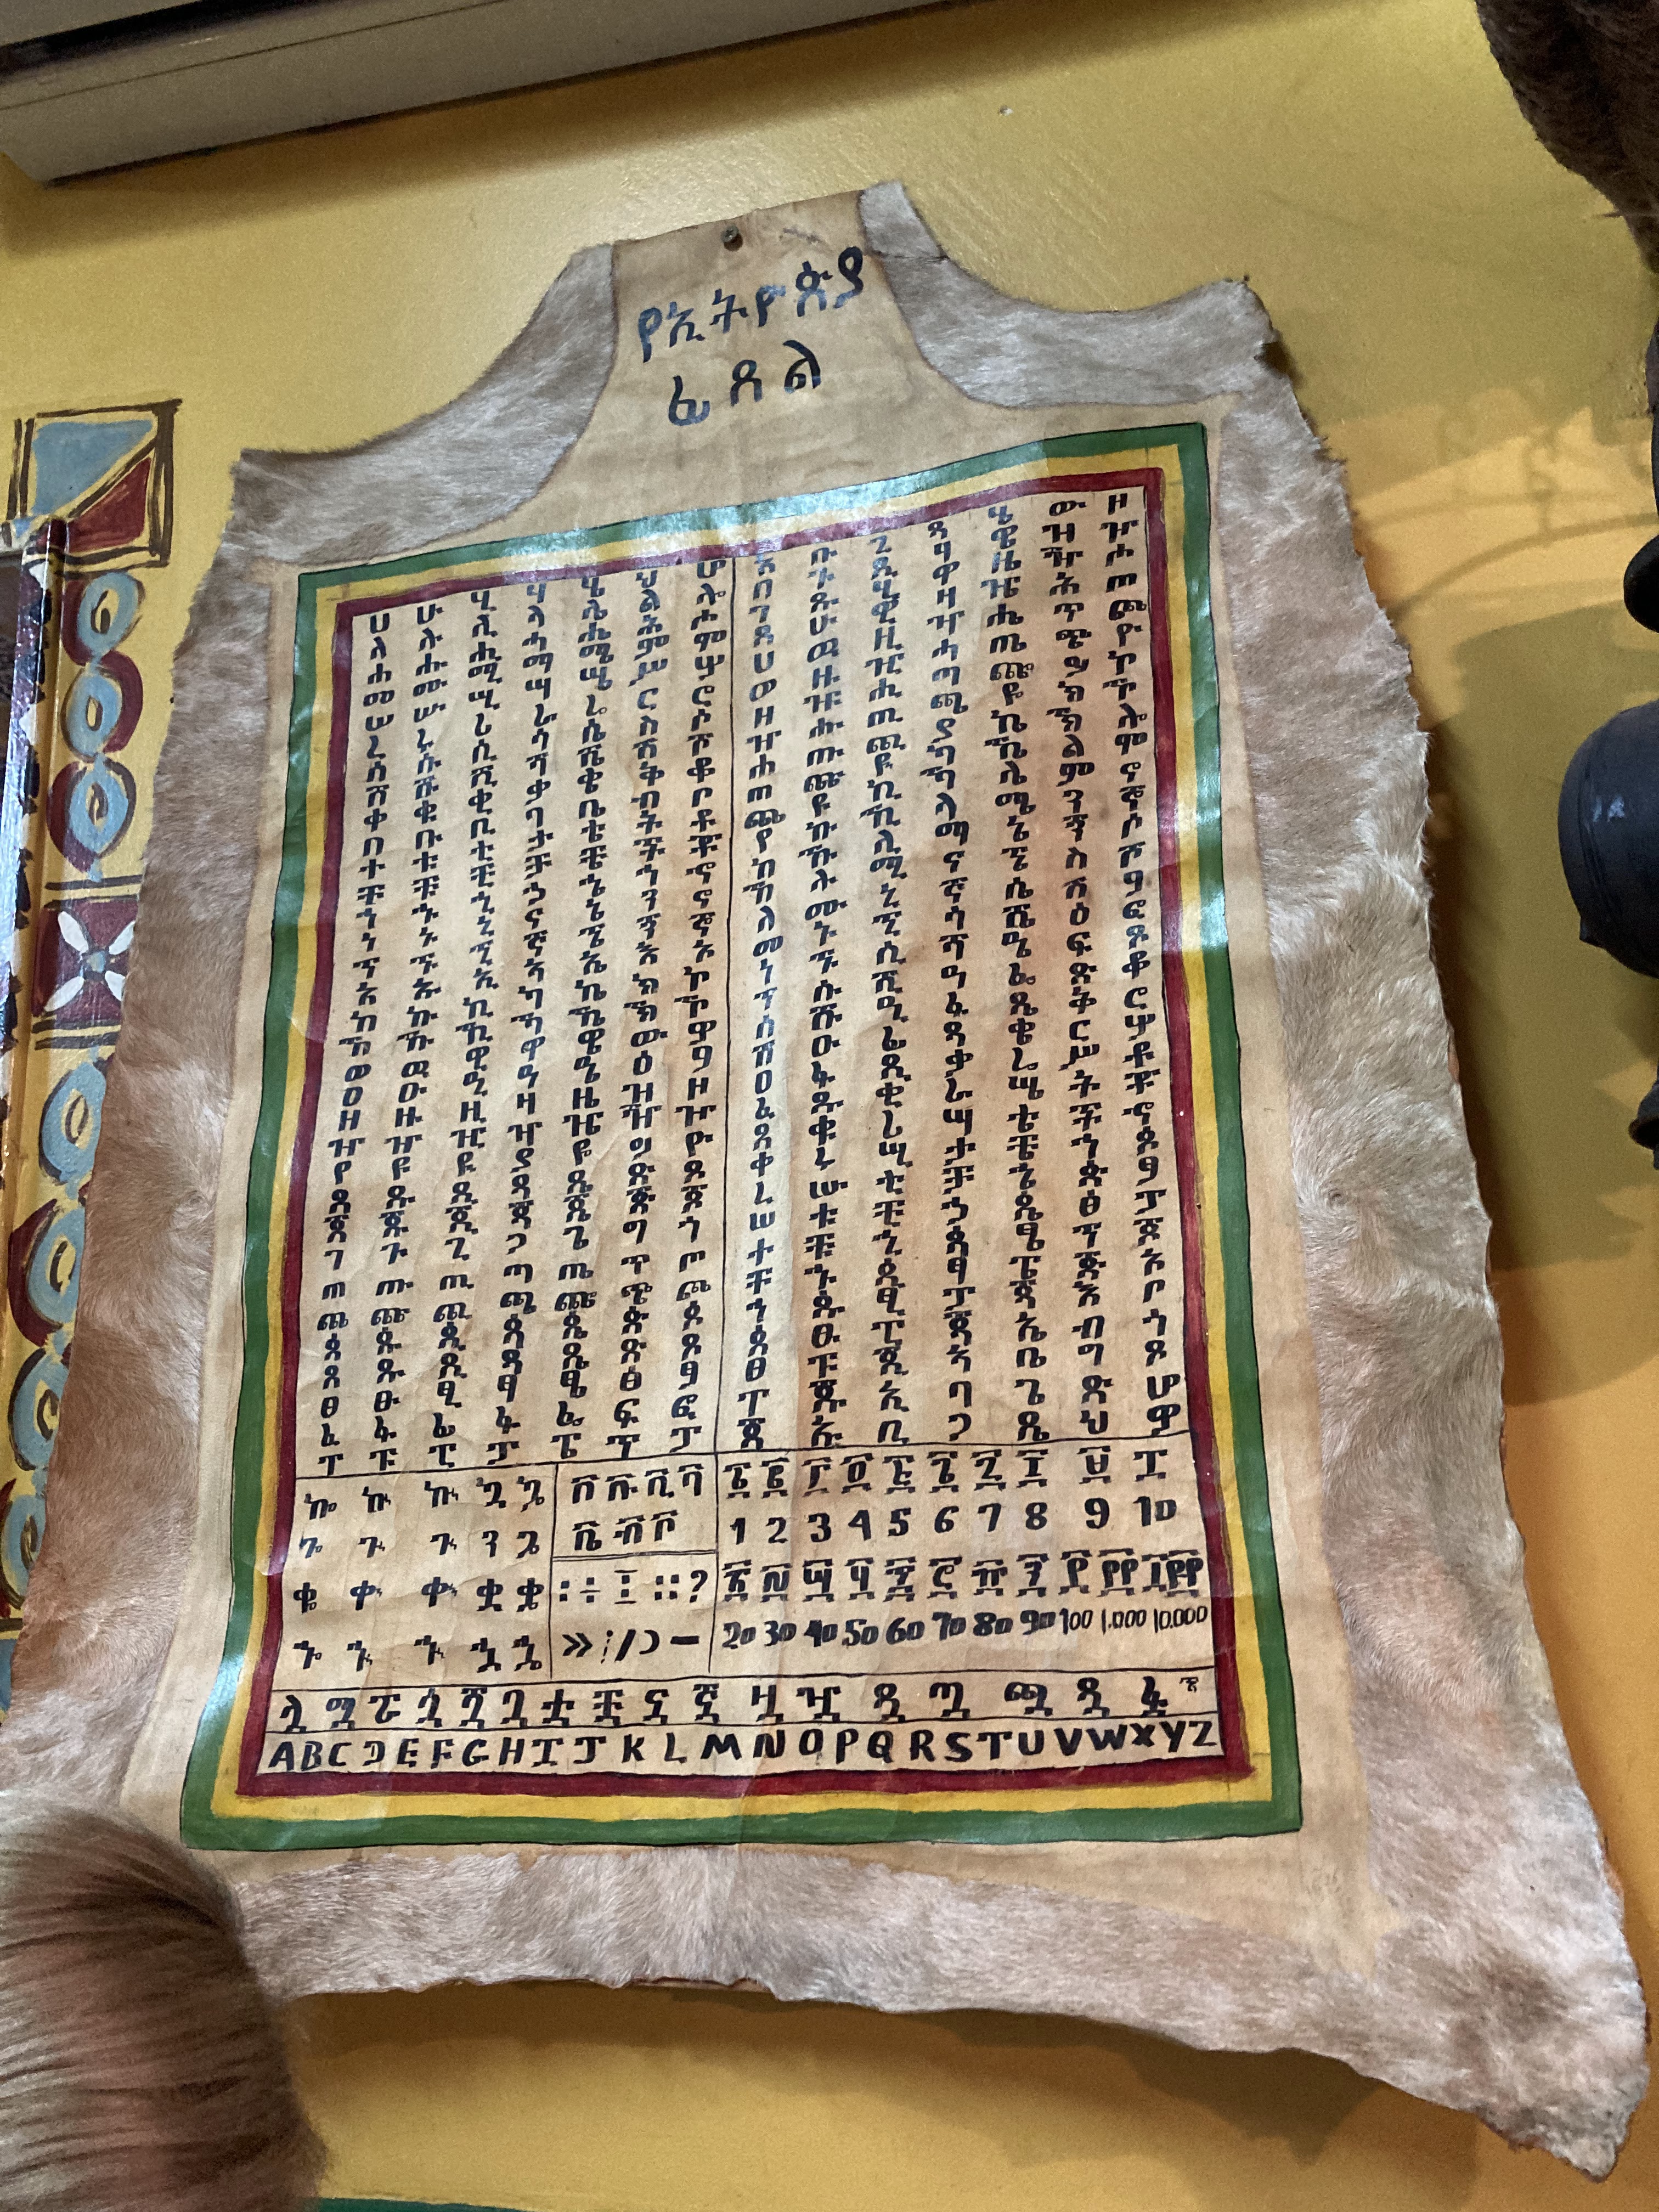 የኢትዮጵያ
ፊደል
ሀ ሁ ሂ ሃ ሄ ህ ሆ
ለ ሉ ሊ ላ ሌ ል ሎ
ሐ ሑ ሒ ሓ ሔ ሕ ሖ
መ ሙ ሚ ማ ሜ ም ሞ
ሠ ሡ ሢ ሣ ሤ ሥ ሦ
ረ ሩ ሪ ራ ሬ ር ሮ
ሰ ሱ ሲ ሳ ሴ ስ ሶ
ሸ ሹ ሺ ሻ ሼ ሽ ሾ
ቀ ቁ ቂ ቃ ቄ ቅ ቆ
በ ቡ ቢ ባ ቤ ብ ቦ
ተ ቱ ቲ ታ ቴ ት ቶ
ቸ ቹ ቺ ቻ ቼ ች ቾ
ኀ ኁ ኂ ኃ ኄ ኅ ኆ
ነ ኑ ኒ ና ኔ ን ኖ
ኘ ኙ ኚ ኛ ኜ ኝ ኞ
አ ኡ ኢ ኣ ኤ እ ኦ
ከ ኩ ኪ ካ ኬ ክ ኮ
ኸ ኹ ኺ ኻ ኼ ኽ ኾ
ወ ዉ ዊ ዋ ዌ ው ዎ
ዐ ዑ ዒ ዓ ዔ ዕ ዖ
ዘ ዙ ዚ ዛ ዜ ዝ ዞ
ዠ ዡ ዢ ዣ ዤ ዥ ዦ
የ ዩ ዪ ያ ዬ ይ ዮ
ደ ዱ ዲ ዳ ዴ ድ ዶ
ጀ ጁ ጂ ጃ ጄ ጅ ጆ
ገ ጉ ጊ ጋ ጌ ግ ጎ
ጠ ጡ ጢ ጣ ጤ ጥ ጦ
ጨ ጩ ጪ ጫ ጬ ጭ ጮ
ጰ ጱ ጲ ጳ ጴ ጵ ጶ
ጸ ጹ ጺ ጻ ጼ ጽ ጾ
ፀ ፁ ፂ ፃ ፄ ፅ ፆ
ፈ ፉ ፊ ፋ ፌ ፍ ፎ
ፐ ፑ ፒ ፓ ፔ ፕ ፖ
አ ቡ ጊ ዳ ሄ ው ዞ
በ ጉ ዲ ሃ ዌ ዝ ዦ
ገ ዱ ሂ ዋ ዜ ዥ ሖ
ደ ሁ ዊ ዛ ዤ ሕ ጦ
ሀ ዉ ዚ ዣ ሔ ጥ ጮ
ወ ዙ ዢ ሓ ጤ ጭ ዮ
ዘ ዡ ሒ ጣ ጬ ይ ኮ
ዠ ሑ ጢ ጫ ዬ ክ ኾ
ሐ ጡ ጪ ያ ኬ ኽ ሎ
ጠ ጩ ዪ ካ ኼ ል ሞ
ጨ ዩ ኪ ኻ ሌ ም ኖ
የ ኩ ኺ ላ ሜ ን ኞ
ከ ኹ ሊ ማ ኔ ኝ ሶ
ኸ ሉ ሚ ና ኜ ስ ሾ
ለ ሙ ኒ ኛ ሴ ሽ ዖ
መ ኑ ኚ ሳ ሼ ዕ ፎ
ነ ኙ ሲ ሻ ዔ ፍ ጾ
ኘ ሱ ሺ ዓ ፌ ጽ ቆ
ሰ ሹ ዒ ፋ ጼ ቅ ሮ
ሸ ዑ ፊ ጻ ቄ ር ሦ
ዐ ፉ ጺ ቃ ሬ ሥ ቶ
ፈ ጹ ቂ ራ ሤ ት ቾ
ጸ ቁ ሪ ሣ ቴ ች ኆ
ቀ ሩ ሢ ታ ቼ ኅ ጶ
ረ ሡ ቲ ቻ ኄ ጵ ፆ
ሠ ቱ ቺ ኃ ጴ ፅ ፖ
ተ ቹ ኂ ጳ ፄ ፕ ጆ
ቸ ኁ ጲ ፃ ፔ ጅ ኦ
ኀ ጱ ፂ ፓ ጄ እ ቦ
ጰ ፁ ፒ ጃ ኤ ብ ጎ
ፀ ፑ ጂ ኣ ቤ ግ ዶ
ፐ ጁ ኢ ባ ጌ ድ ሆ
ጀ ኡ ቢ ጋ ዴ ህ ዎ
ኰ ኲ ኵ ኳ ኴ
ጐ ጒ ጕ ጓ ጔ
ቈ ቊ ቍ ቋ ቌ
ኈ ኊ ኍ ኋ ኌ
ቨ ቩ ቪ ቫ
ቬ ቭ ቮ
፡ ÷ ፤ ። ?
» / ) –
፩ ፪ ፫ ፬ ፭ ፮ ፯ ፰ ፱ ፲
1 2 3 4 5 6 7 8 9 10
፳ ፴ ፵ ፶ ፷ ፸ ፹ ፺ ፻ ፻፻ ፲፻፻
20 30 40 50 60 70 80 90 100 1,000 10,000
ሏ ሟ ሯ ሷ ሿ ቧ ቷ ቿ ኗ ኟ ዟ ዧ ዷ ጧ ጯ ጿ ፏ
A B C D E F G H I J K L M N O P Q R S T U V W X Y Z